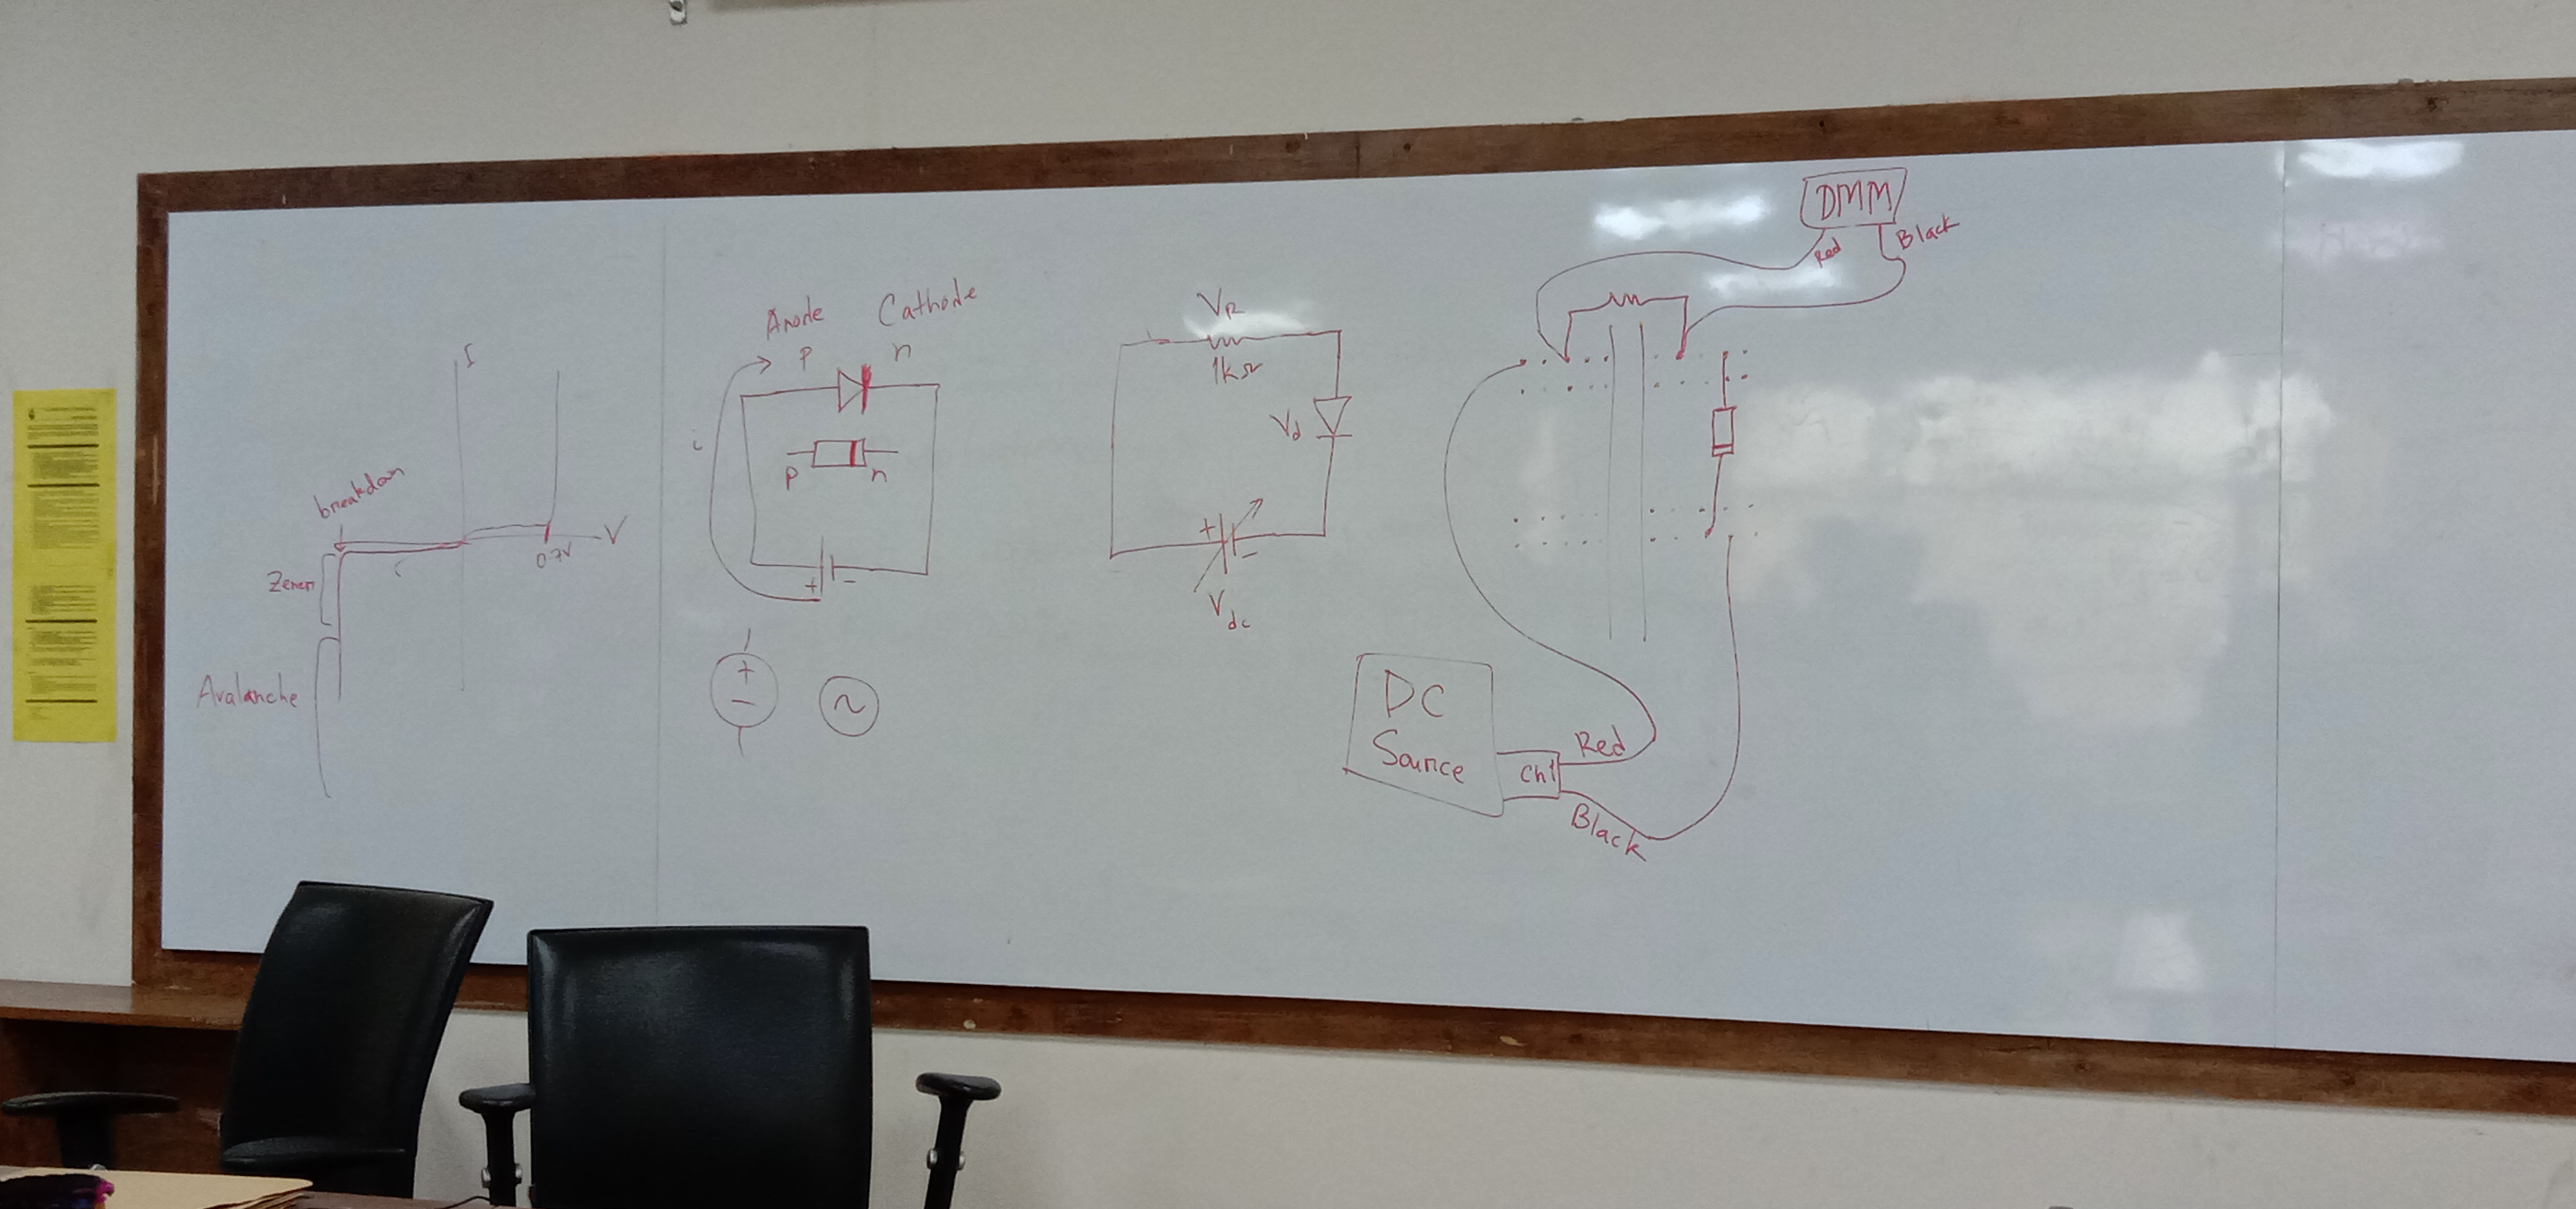 I
V
0.7V
breakdon
Zener
Avalanche
Anode Cathode
p n
i
p n
+ -
+
-
~
VR
1kΩ
Vd
+ -
Vdc
DMM
Red Black
DC
Source
Ch1
Red
Black